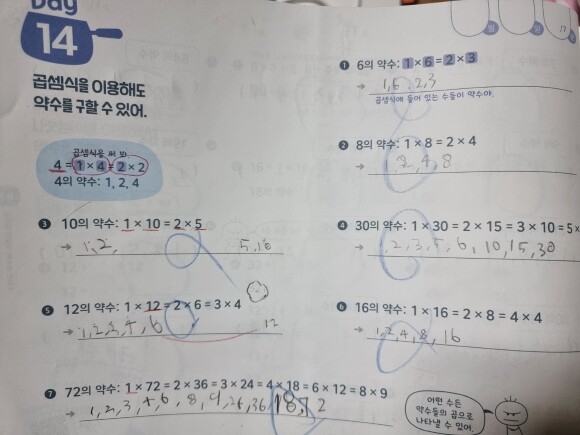 Day
14
곱셈식을 이용해도
약수를 구할 수 있어.
곱셈식을 써 봐.
4 = 1 × 4 = 2 × 2
4의 약수: 1, 2, 4
❶ 6의 약수: 1 × 6 = 2 × 3
→ 1, 6, 2, 3
곱셈식에 들어 있는 수들이 약수야.
❷ 8의 약수: 1 × 8 = 2 × 4
→ 1, 2, 4, 8
❸ 10의 약수: 1 × 10 = 2 × 5
→ 1, 2, 5, 10
❹ 30의 약수: 1 × 30 = 2 × 15 = 3 × 10 = 5 ×
→ 1, 2, 3, 5, 6, 10, 15, 30
❺ 12의 약수: 1 × 12 = 2 × 6 = 3 × 4
→ 1, 2, 3, 4, 6 12
❻ 16의 약수: 1 × 16 = 2 × 8 = 4 × 4
→ 1, 2, 4, 8, 16
❼ 72의 약수: 1 × 72 = 2 × 36 = 3 × 24 = 4 × 18 = 6 × 12 = 8 × 9
→ 1, 2, 3, 4, 6, 8, 9, 24, 36, 18, 72
어떤 수든
약수들의 곱으로
나타낼 수 있어.